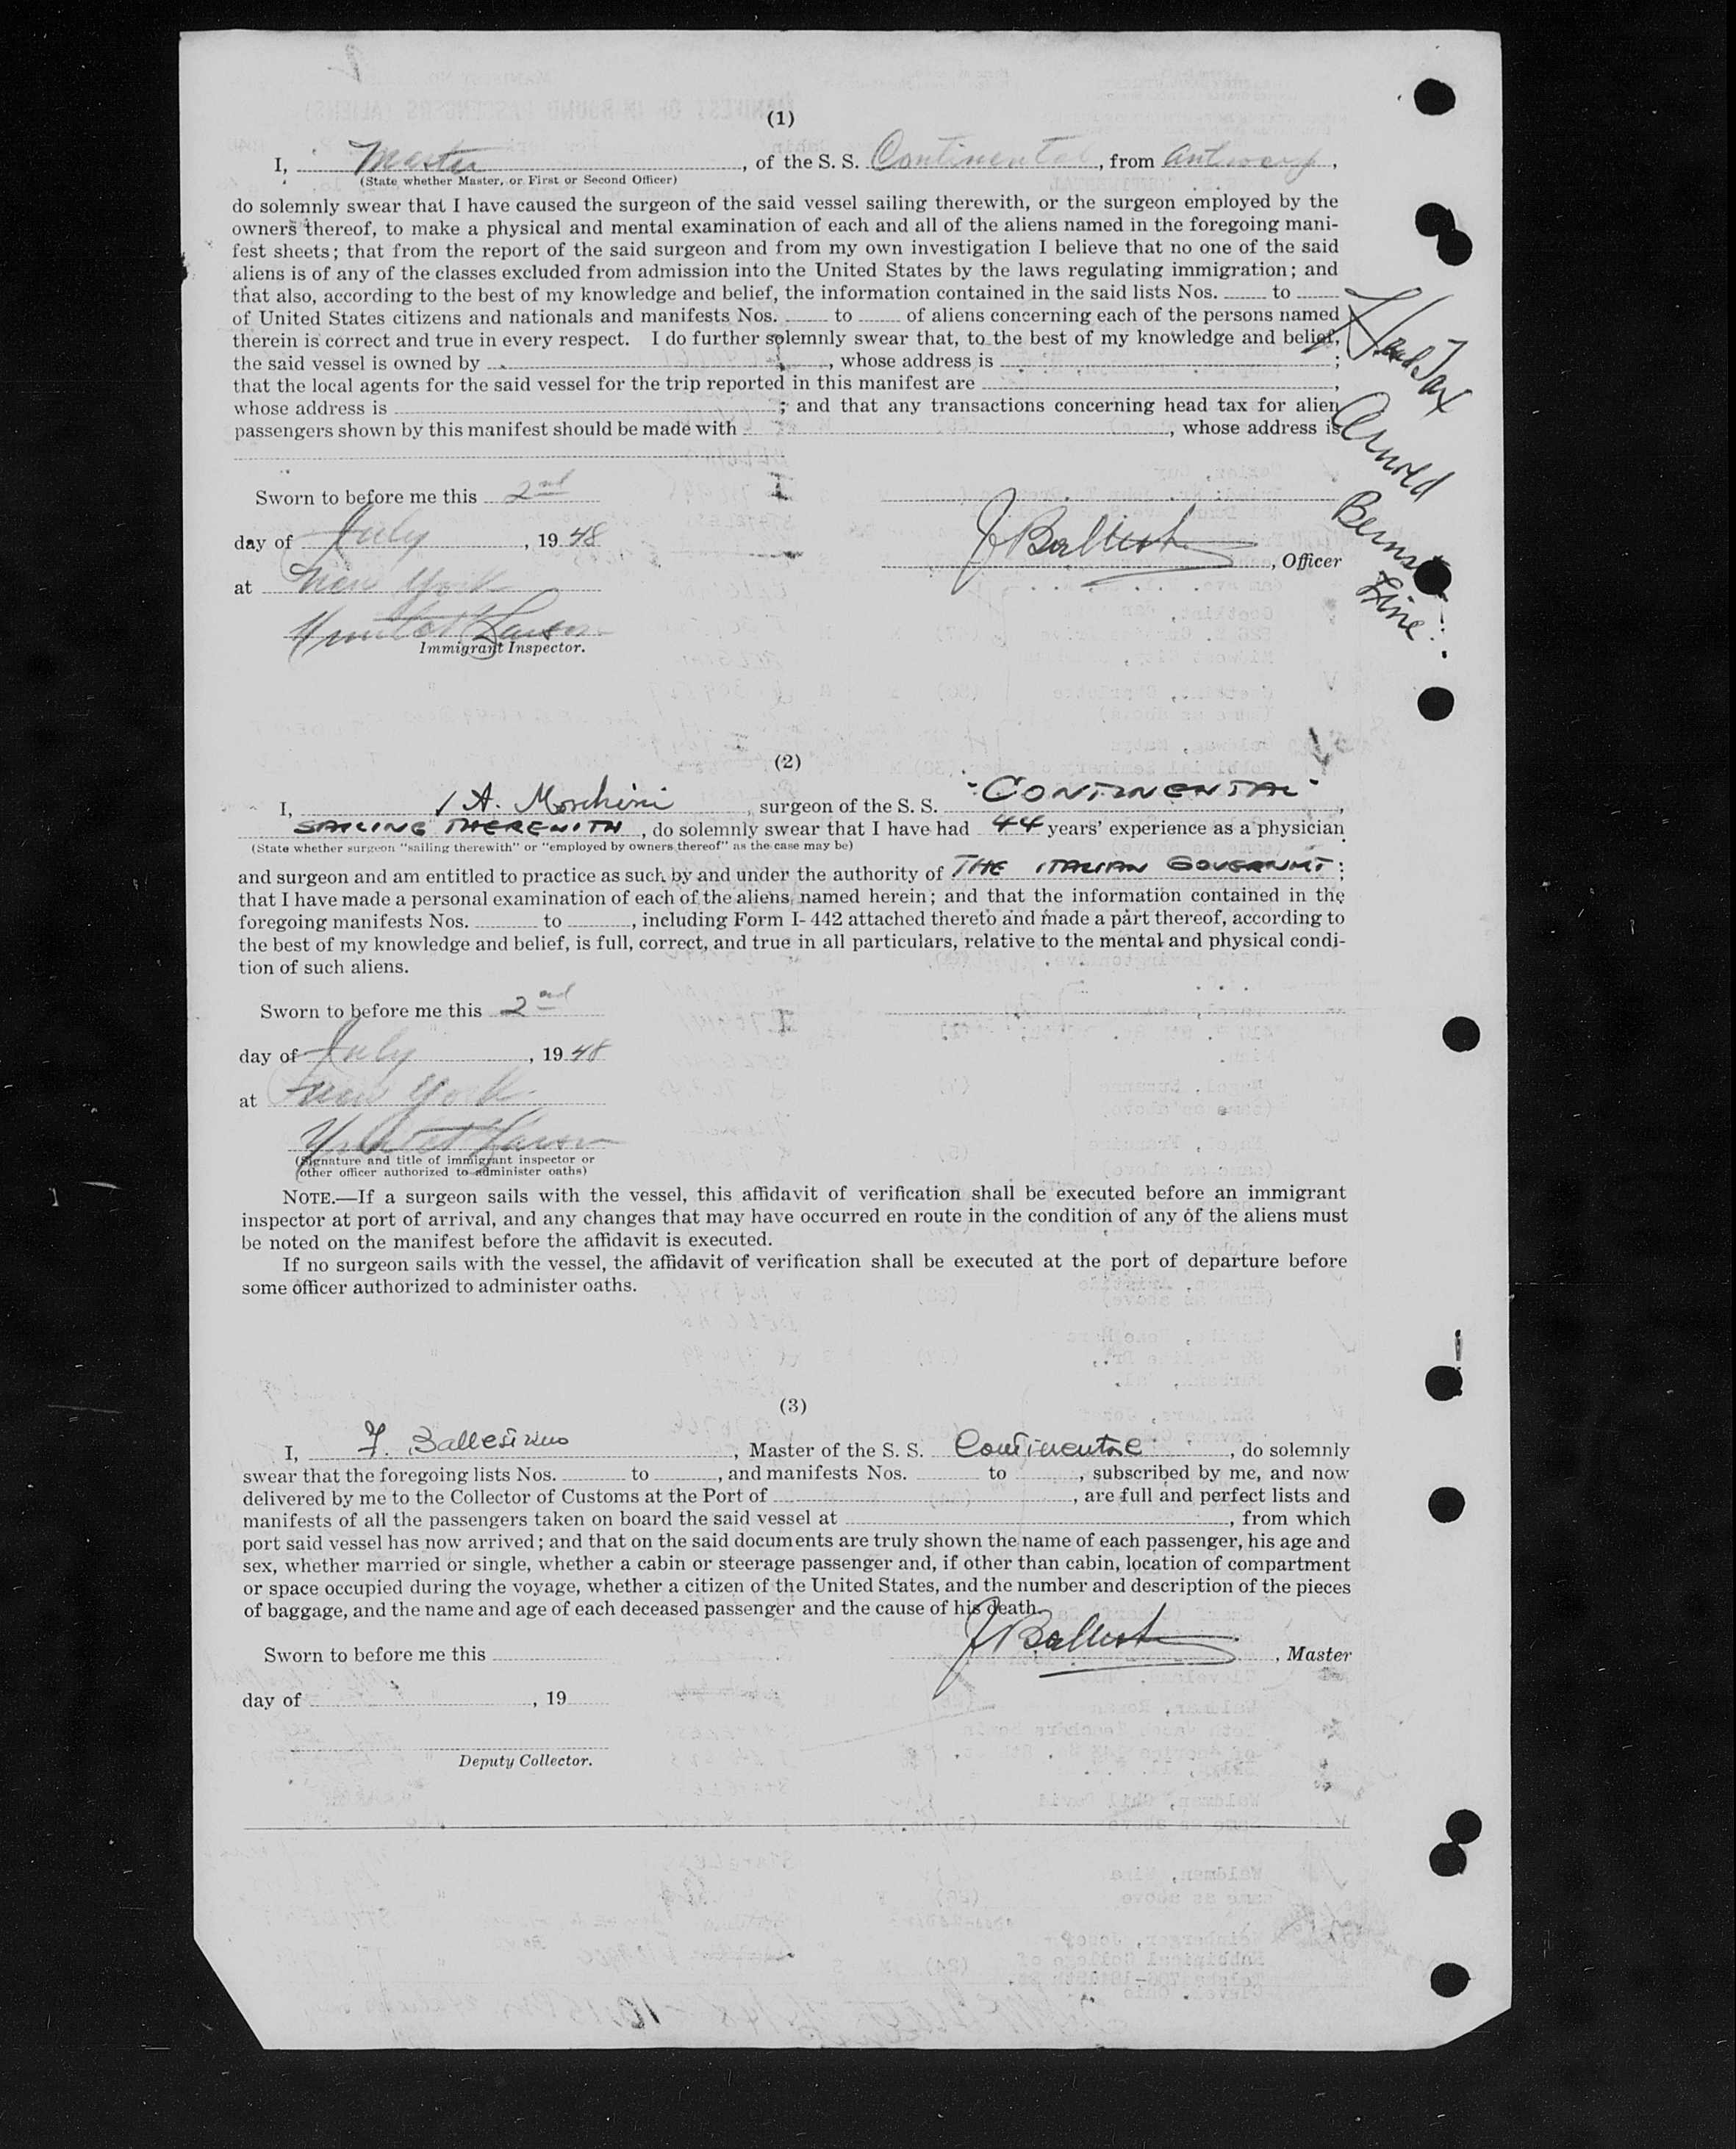 (1)
I, Master, of the S. S. Continental, from Antwerp,
(State whether Master, or First or Second Officer)
do solemnly swear that I have caused the surgeon of the said vessel sailing therewith, or the surgeon employed by the
owners thereof, to make a physical and mental examination of each and all of the aliens named in the foregoing mani-
fest sheets; that from the report of the said surgeon and from my own investigation I believe that no one of the said
aliens is of any of the classes excluded from admission into the United States by the laws regulating immigration; and
that also, according to the best of my knowledge and belief, the information contained in the said lists Nos. to
of United States citizens and nationals and manifests Nos. to of aliens concerning each of the persons named
therein is correct and true in every respect. I do further solemnly swear that, to the best of my knowledge and belief,
the said vessel is owned by , whose address is ;
that the local agents for the said vessel for the trip reported in this manifest are ,
whose address is ; and that any transactions concerning head tax for alien
passengers shown by this manifest should be made with , whose address is
Head Tax
Arnold
Line
Sworn to before me this 2nd
day of July, 19 48
, Officer
at New York
Immigrant Inspector.
(2)
I, A. Moschini, surgeon of the S. S. "CONTINENTAL",
SAILING THEREWITH, do solemnly swear that I have had 44 years' experience as a physician
(State whether surgeon "sailing therewith" or "employed by owners thereof" as the case may be)
and surgeon and am entitled to practice as such by and under the authority of THE ITALIAN GOVERNMT;
that I have made a personal examination of each of the aliens named herein; and that the information contained in the
foregoing manifests Nos. to , including Form I-442 attached thereto and made a part thereof, according to
the best of my knowledge and belief, is full, correct, and true in all particulars, relative to the mental and physical condi-
tion of such aliens.
Sworn to before me this 2nd
day of July, 19 48
at New York
(Signature and title of immigrant inspector or
other officer authorized to administer oaths)
NOTE.—If a surgeon sails with the vessel, this affidavit of verification shall be executed before an immigrant
inspector at port of arrival, and any changes that may have occurred en route in the condition of any of the aliens must
be noted on the manifest before the affidavit is executed.
If no surgeon sails with the vessel, the affidavit of verification shall be executed at the port of departure before
some officer authorized to administer oaths.
(3)
I, , Master of the S. S. Continental, do solemnly
swear that the foregoing lists Nos. to , and manifests Nos. to , subscribed by me, and now
delivered by me to the Collector of Customs at the Port of , are full and perfect lists and
manifests of all the passengers taken on board the said vessel at , from which
port said vessel has now arrived; and that on the said documents are truly shown the name of each passenger, his age and
sex, whether married or single, whether a cabin or steerage passenger and, if other than cabin, location of compartment
or space occupied during the voyage, whether a citizen of the United States, and the number and description of the pieces
of baggage, and the name and age of each deceased passenger and the cause of his death.
Sworn to before me this
, Master
day of , 19
Deputy Collector.